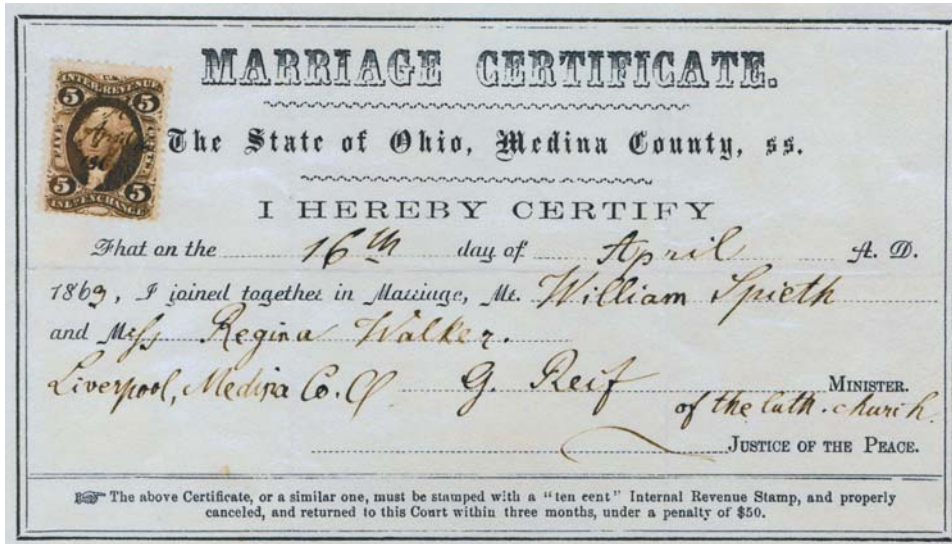 MARRIAGE CERTIFICATE.
U.S.
INTER. REVENUE
5 5
FIVE CENTS
April
5 5
INL. EXCHANGE
The State of Ohio, Medina County, ss.
I HEREBY CERTIFY
That on the 16th day of April A. D.
1869, I joined together in Marriage, Mr. William Spieth
and Miss Regina Walker.
Liverpool, Medina Co. O G. Reif MINISTER.
of the luth. church.
JUSTICE OF THE PEACE.
☞ The above Certificate, or a similar one, must be stamped with a "ten cent" Internal Revenue Stamp, and properly
canceled, and returned to this Court within three months, under a penalty of $50.